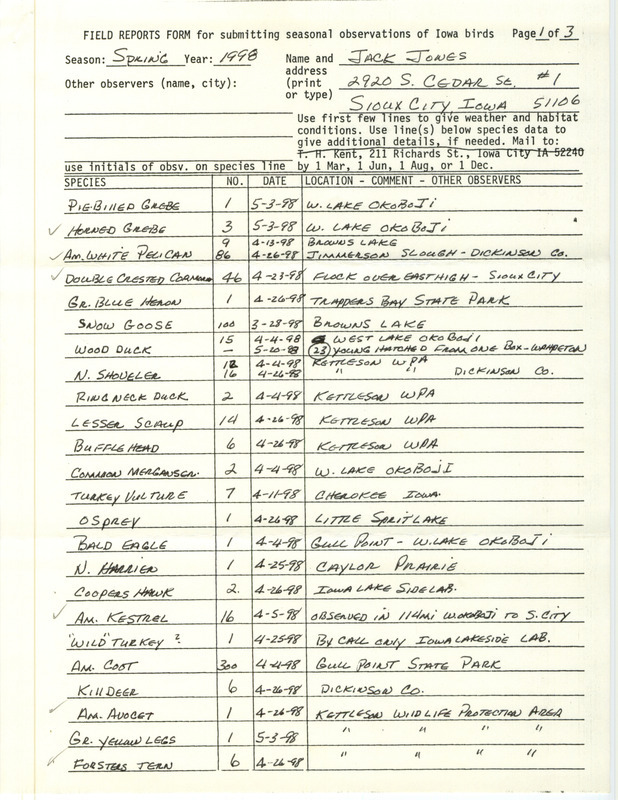 FIELD REPORTS FORM for submitting seasonal observations of Iowa birds Page 1 of 3
Season: SPRING Year: 1998 Name and JACK JONES
address
Other observers (name, city): (print 2920 S. CEDAR St. #1
or type)
SIOUX CITY IOWA 51106
Use first few lines to give weather and habitat
conditions. Use line(s) below species data to
give additional details, if needed. Mail to:
T. H. Kent, 211 Richards St., Iowa City IA 52240
use initials of obsv. on species line by 1 Mar, 1 Jun, 1 Aug, or 1 Dec.
SPECIES NO. DATE LOCATION - COMMENT - OTHER OBSERVERS
PIE BILLED GREBE 1 5-3-98 W. LAKE OKOBOJI
✓ HORNED GREBE 3 5-3-98 W. LAKE OKOBOJI
9 4-13-98 BROWNS LAKE
✓ AM. WHITE PELICAN 86 4-26-98 JIMMERSON SLOUGH - DICKINSON CO.
✓ DOUBLE CRESTED CORMORANT 46 4-23-98 FLOCK OVER EAST HIGH - SIOUX CITY
GR. BLUE HERON 1 4-26-98 TRAPPERS BAY STATE PARK
SNOW GOOSE 100 3-28-98 BROWNS LAKE
15 4-4-98 WEST LAKE OKOBOJI
WOOD DUCK — 5-20-98 (23) YOUNG HATCHED FROM ONE BOX - WAHPETON
12 4-4-98 KETTLESON WPA
N. SHOVELER 16 4-26-98 " " DICKINSON CO.
RING NECK DUCK 2 4-4-98 KETTLESON WPA
LESSER SCAUP 14 4-26-98 KETTLESON WPA
BUFFLEHEAD 6 4-26-98 KETTLESON WPA
COMMON MERGANSER. 2 4-4-98 W. LAKE OKOBOJI
TURKEY VULTURE 7 4-11-98 CHEROKEE IOWA.
OSPREY 1 4-26-98 LITTLE SPRIT LAKE
BALD EAGLE 1 4-4-98 GULL POINT - W. LAKE OKOBOJI
N. HARRIER 1 4-25-98 CAYLOR PRAIRIE
COOPERS HAWK 2. 4-26-98 IOWA LAKE SIDE LAB.
✓ AM. KESTREL 16 4-5-98 OBSERVED IN 114MI W.OKOBOJI TO S.CITY
"WILD" TURKEY ? 1 4-25-98 BY CALL ONLY IOWA LAKESIDE LAB.
AM. COOT 300 4-4-98 GULL POINT STATE PARK
KILLDEER 6 4-26-98 DICKINSON CO.
✓ AM. AVOCET 1 4-26-98 KETTLESON WILDLIFE PROTECTION AREA
GR. YELLOW LEGS 1 5-3-98 " " " "
✓ FORSTERS TERN 6 4-26-98 " " " "